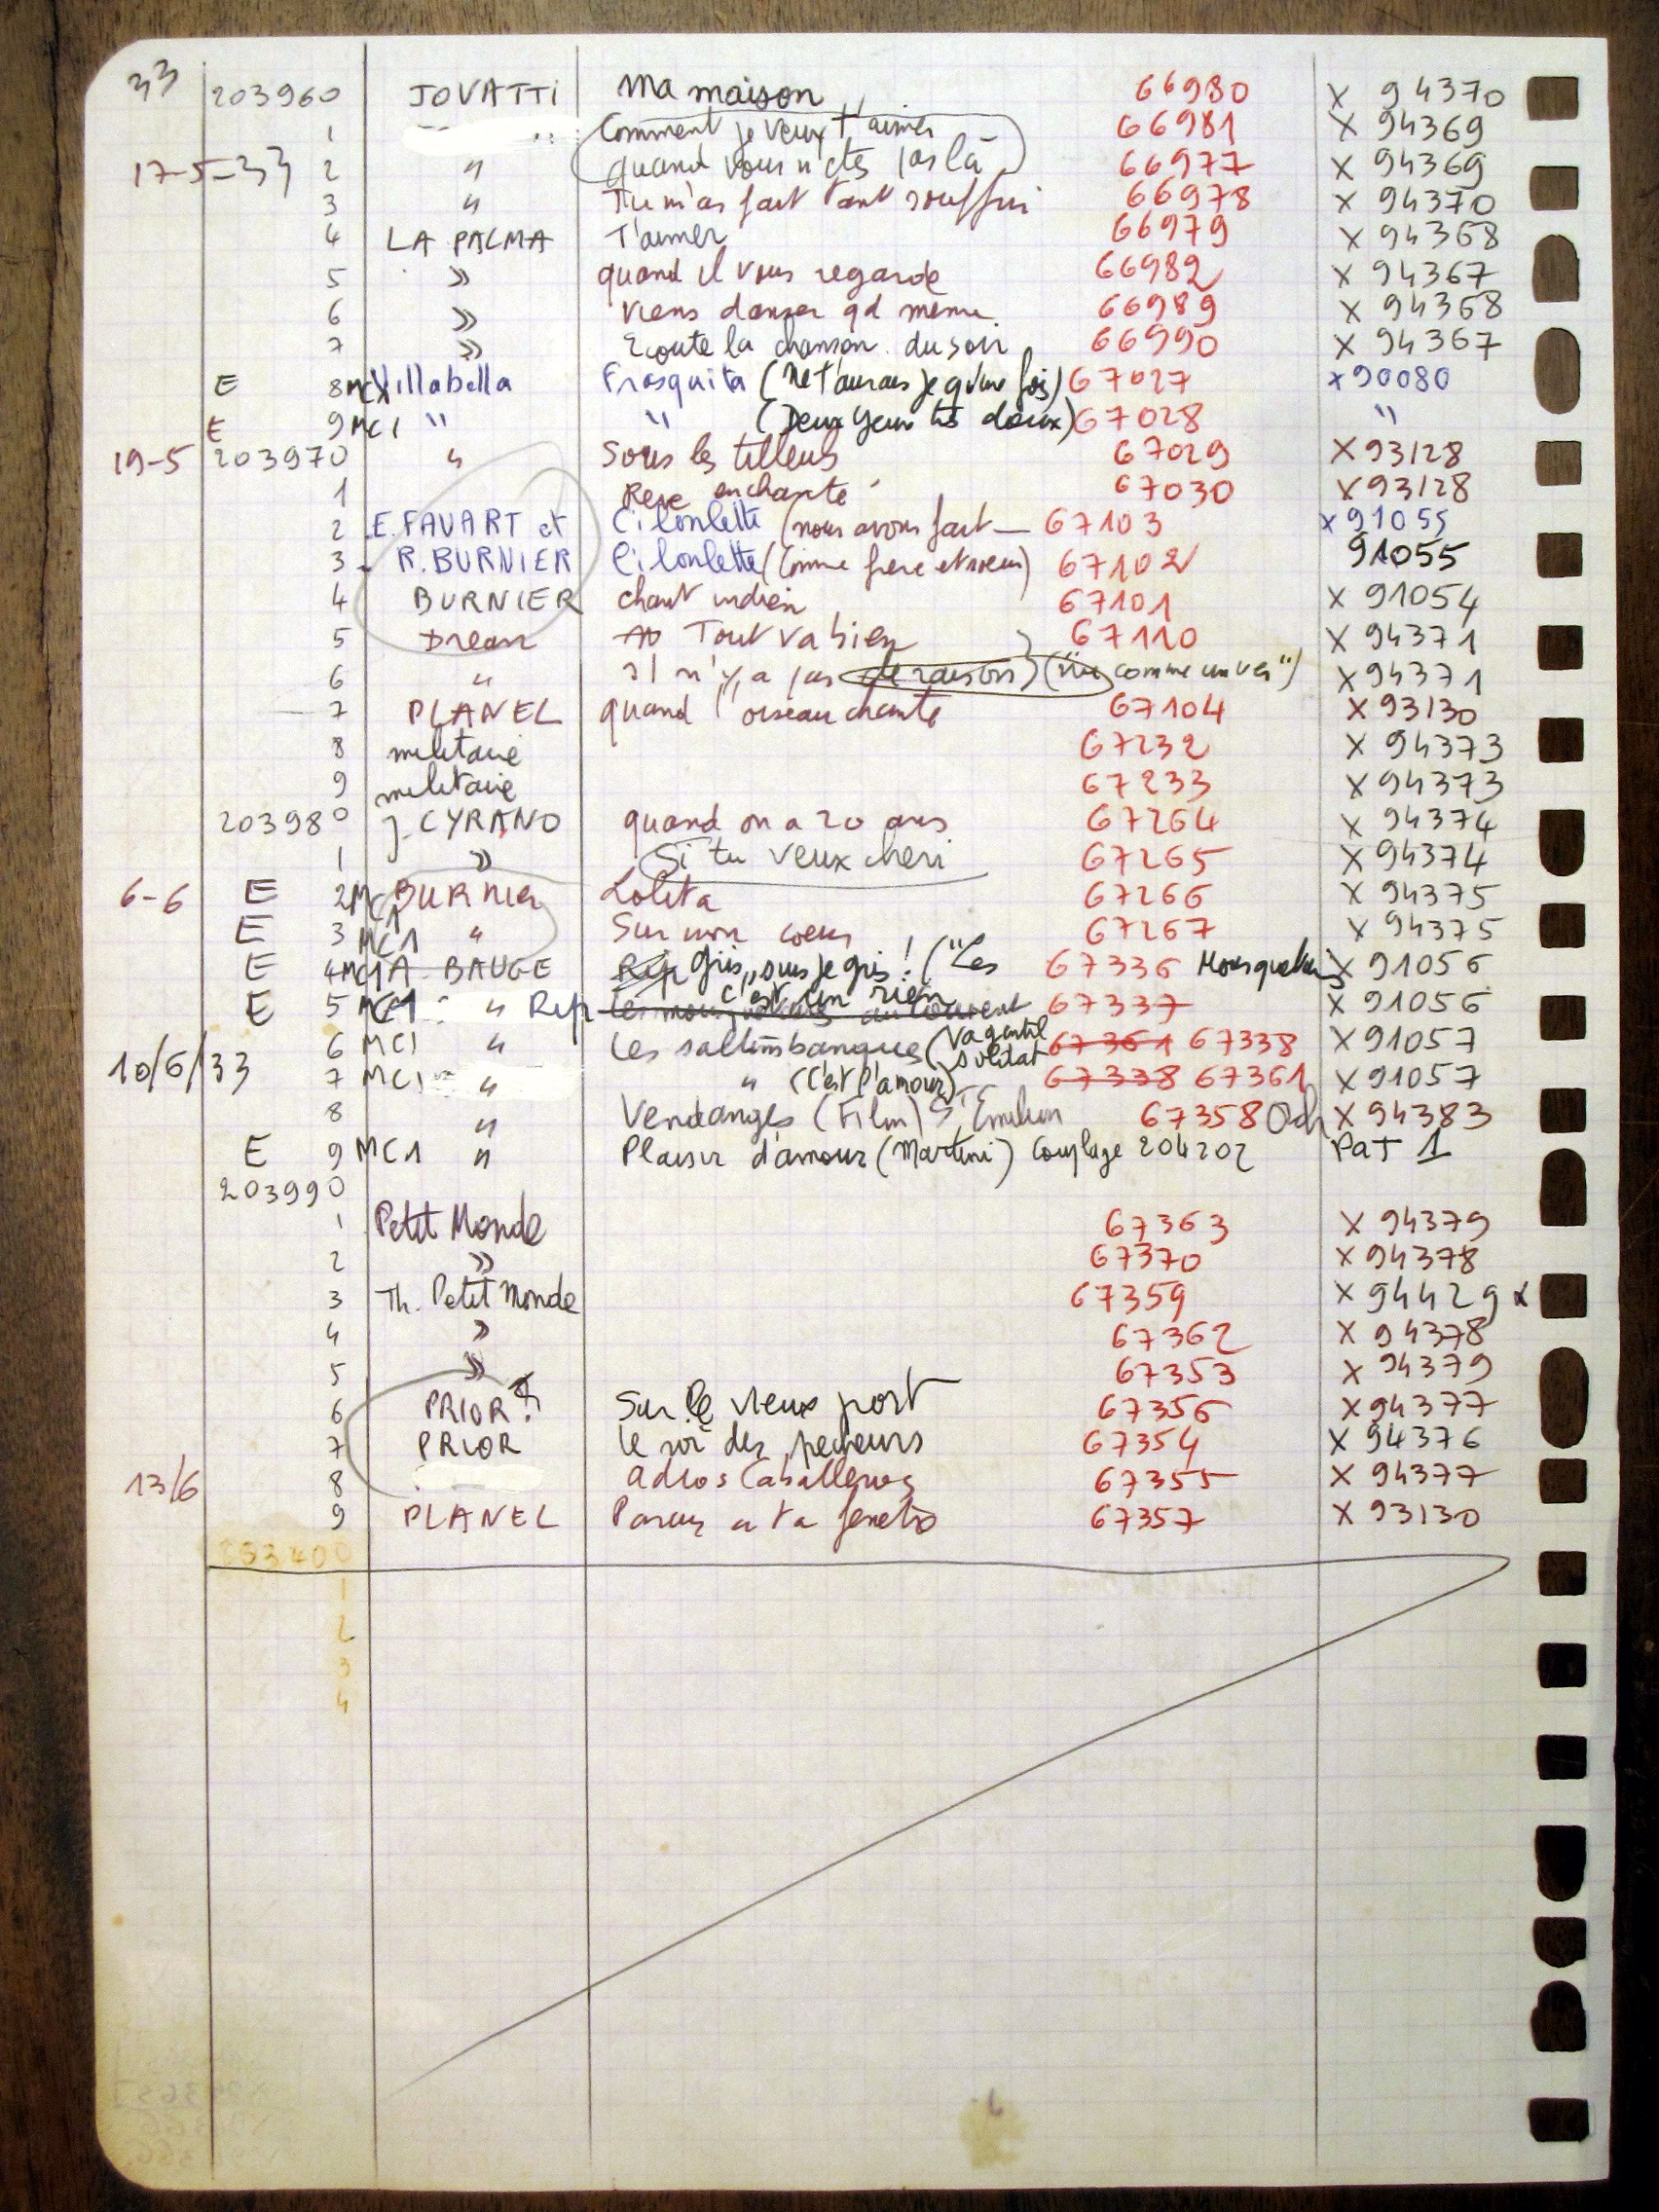 33 203960 JOVATTI Ma maison 66980 X 94370
1 Comment je veux t'aimer 66981 X 94369
17-5-33 2 " quand vous n'êtes pas là 66977 X 94369
3 " Tu m'as fait tant souffrir 66978 X 94370
4 LA PALMA T'aimer 66979 X 94368
5 » quand il vous regarde 66982 X 94367
6 » Viens danser qd même 66989 X 94368
7 » Ecoute la chanson du soir 66990 X 94367
E 8 MC1 Villabella Frasquita (Ne t'aurais je qu'une fois) 67027 x 90080
E 9 MC1 " " (Deux yeux très doux) 67028 "
19-5 203970 " Sous les tilleuls 67029 X 93128
1 Reve enchanté 67030 X 93128
2 E. FAVART et Ciboulette (nous avons fait — 67103 x 91055
3 R. BURNIER Ciboulette (Comme frere et soeur) 67102 91055
4 BURNIER chant indien 67101 X 91054
5 Drean Tout va bien 67110 X 94371
6 " Il n'y a pas de raisons) ("nu comme un ver") X 94371
7 PLANEL quand l'oiseau chante 67104 X 93130
8 militaire 67232 X 94373
9 militaire 67233 X 94373
203980 J. CYRANO quand on a 20 ans 67264 X 94374
1 » Si tu veux cheri 67265 X 94374
6-6 E 2 MC1 BURNIER Lolita 67266 X 94375
E 3 MC1 " Sur mon coeur 67267 X 94375
E 4 MC1 A. BAUGE Rip Gris, suis je gris! ("Les 67336 Mousquetaires X 91056
E 5 MC1 " Rip c'est un rien
Les mousquetaires au couvent 67337 X 91056
6 MC1 " Les saltimbanques (Va gentil soldat 67361 67338 X 91057
10/6/33 7 MC1 " " (C'est l'amour) 67338 67361 X 91057
8 " Vendanges (Film) St Emilion 67358 Och X 94383
E 9 MC1 " Plaisir d'amour (Martini) Couplage 204202 PaT 1
203990
1 Petit Monde 67363 X 94379
2 » 67370 X 94378
3 Th. Petit Monde 67359 X 94429 x
4 » 67362 X 94378
5 » 67353 X 94379
6 PRIOR? Sur le vieux port 67356 X 94377
7 PRIOR le roi des pecheurs 67354 X 94376
13/6 8 adios Caballeros 67355 X 94377
9 PLANEL Parais a ta fenetre 67357 X 93130
203400
1
2
3
4